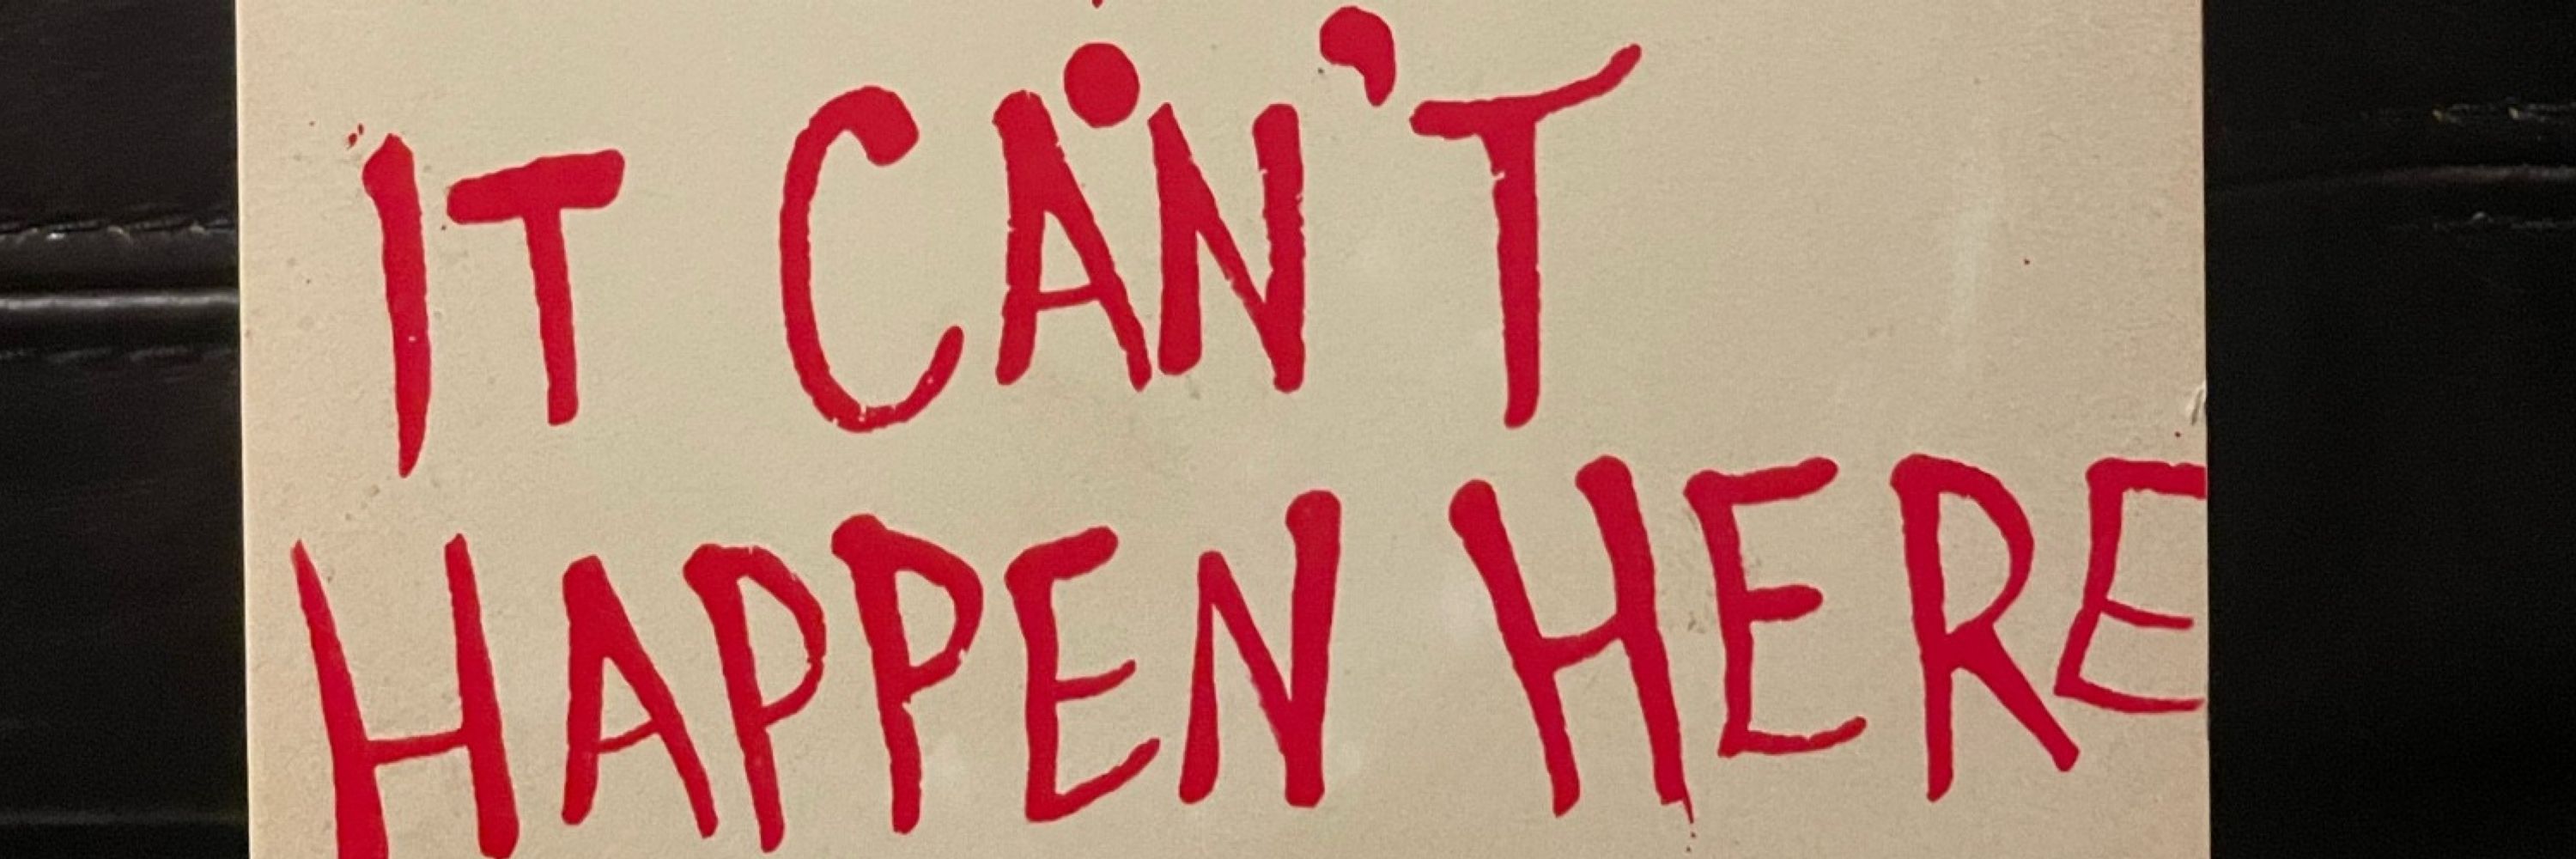 IT CAN'T
HAPPEN HERE